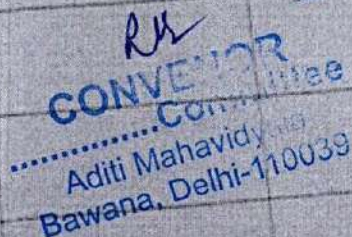 CONVENOR
..............Committee
Aditi Mahavidyalaya
Bawana, Delhi-110039